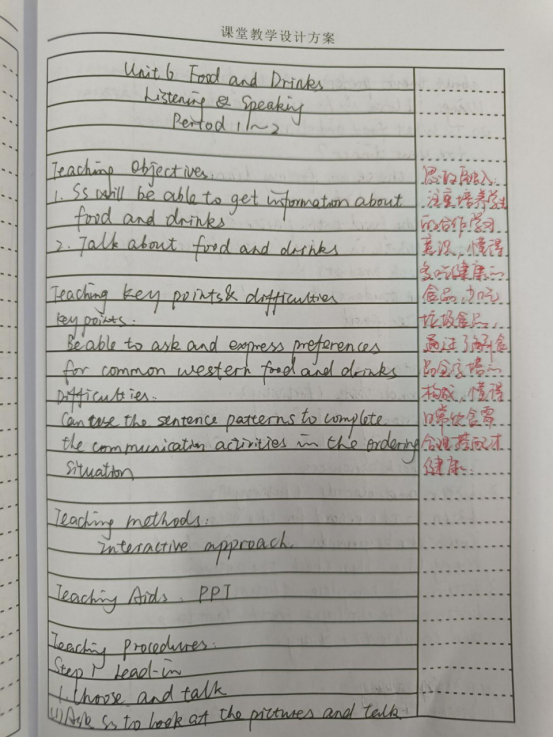 课堂教学设计方案
Unit 6 Food and Drinks
Listening & Speaking
Period 1~2
Teaching Objectives:
1. Ss will be able to get information about
food and drinks
2. Talk about food and drinks
Teaching key points & difficulties
key points:
Be able to ask and express preferences
for common western food and drinks
Difficulties:
Can use the sentence patterns to complete
the communication activities in the ordering
situation
Teaching methods:
interactive approach
Teaching Aids: PPT
Teaching Procedures:
Step 1 Lead-in
1. Choose and talk
(1) Ask Ss to look at the pictures and talk
思政融入:
注重培养学生
的合作学习
意识,懂得
多吃健康的
食品,少吃
垃圾食品,
通过了解食
构成,懂得
日常饮食需
健康.